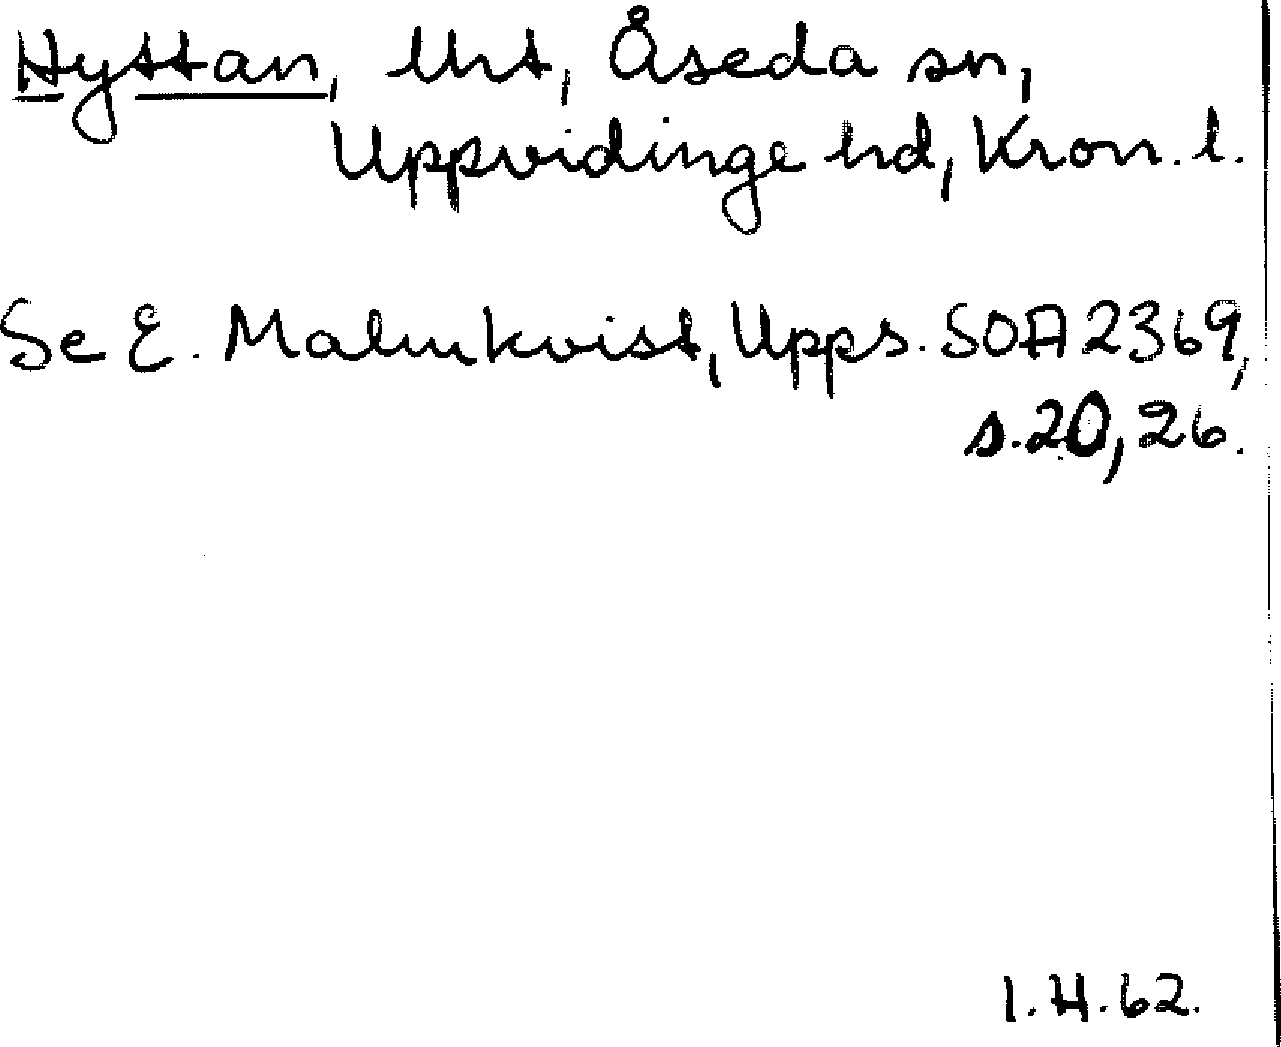 Hyttan, lht, Åseda sn,
Uppvidinge hd, Kron. l.
Se E. Malmkvist, Upps. SOA 2369,
s. 20, 26.
I. H. 62.